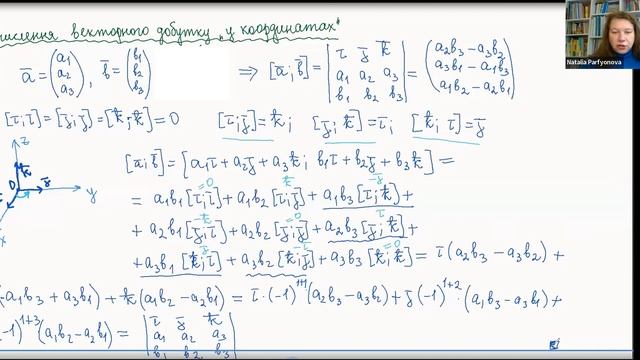 числення векторного добутку „у координатах"
a̅ = (a₁ a₂ a₃), b̅ = (b₁ b₂ b₃) ⇒ [a̅; b̅] = | i̅ j̅ k̅ ; a₁ a₂ a₃ ; b₁ b₂ b₃ | = (a₂b₃ − a₃b₂ ; a₃b₁ − a₁b₃ ; a₁b₂ − a₂b₁)
[i̅; i̅] = [j̅; j̅] = [k̅; k̅] = 0 [i̅; j̅] = k̅; [j̅; k̅] = i̅; [k̅; i̅] = j̅
z k̅ 0 j̅ y x
[a̅; b̅] = [a₁i̅ + a₂j̅ + a₃k̅; b₁i̅ + b₂j̅ + b₃k̅] =
=0 k̅ -j̅
= a₁b₁[i̅; i̅] + a₁b₂[i̅; j̅] + a₁b₃[i̅; k̅] +
-k̅ =0 i̅
+ a₂b₁[j̅; i̅] + a₂b₂[j̅; j̅] + a₂b₃[j̅; k̅] +
j̅ -i̅ =0
+ a₃b₁[k̅; i̅] + a₃b₂[k̅; j̅] + a₃b₃[k̅; k̅] = i̅(a₂b₃ − a₃b₂) +
(-a₁b₃ + a₃b₁) + k̅(a₁b₂ − a₂b₁) = i̅·(-1)¹⁺¹(a₂b₃ − a₃b₂) + j̅(-1)¹⁺²·(a₁b₃ − a₃b₁) +
-1)¹⁺³(a₁b₂ − a₂b₁) = | i̅ j̅ k̅ ; a₁ a₂ a₃ ; b₁ b₂ b₃ |
Natalia Parfyonova